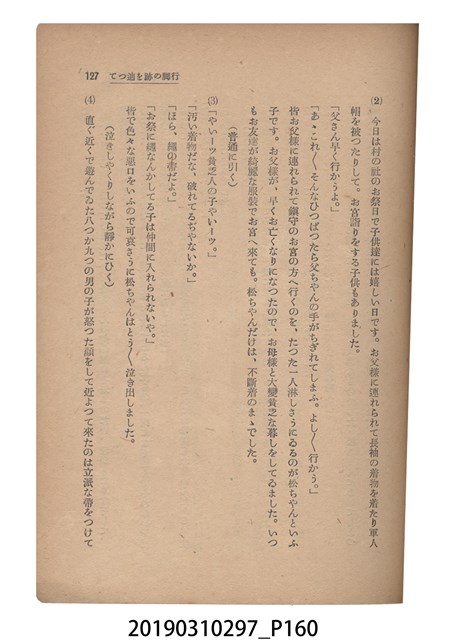 127　てつ追を跡の脚行
(2)　今日は村の社のお祭日で子供達には嬉しい日です。お父樣に連れられて長袖の着物を着たり軍人
帽を被つたりして。お宮詣りをする子供もありました。
「父さん早く行かうよ。」
「あゝこれ〱そんなひつぱつたら父ちやんの手がちぎれてしまふ。よし〱行かう。」
皆お父樣に連れられて鎭守のお宮の方へ行くのを、たつた一人淋しさうにゐるのが松ちやんといふ
子です。お父樣が、早くお亡くなりになつたので、お母樣と大變貧乏な暮しをしてゐました。いつ
もお友達が綺麗な服裝でお宮へ來ても。松ちやんだけは、不斷着のまゝでした。
（普通に引く）
(3)　「やいーッ貧乏人の子やいーツ。」
「汚い着物だな、破れてるぢやないか。」
「ほら、繩の帶だよ。」
「お祭に繩なんかしてる子は仲間に入れられないや。」
皆で色々な惡口をいふので可哀さうに松ちやんはとう〱泣き出しました。
（泣きしやくりしながら靜かにひく）
(4)　直ぐ近くで遊んでゐた八つか九つの男の子が怒つた顏をして近よつて來たのは立派な帶をつけて
20190310297_P160